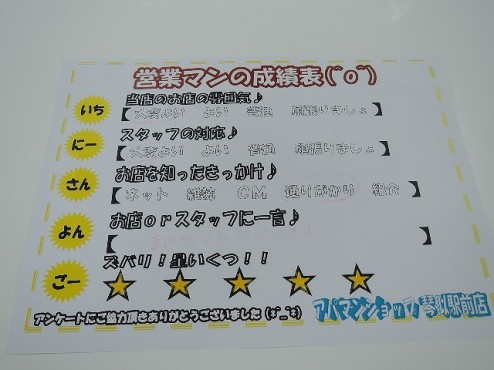 営業マンの成績表(´o`)
いち
当店のお店の雰囲気♪
【 大変よい よい 普通 頑張りましょ 】
にー
スタッフの対応♪
【 大変よい よい 普通 頑張りましょ 】
さん
お店を知ったきっかけ♪
【 ネット 雑誌 CM 通りがかり 紹介 】
よん
お店orスタッフに一言♪
【 】
ごー
ズバリ!星いくつ!!
アンケートにご協力頂きありがとうございました
アパマンショップ琴似駅前店